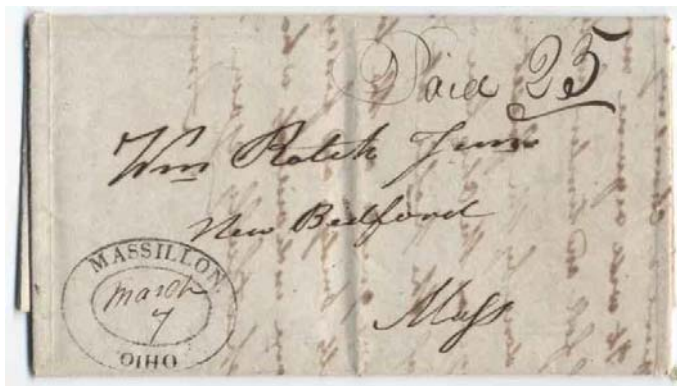 Paid 25
Wm Rotch Junr
New Bedford
Mass
MASSILLON.
March
7
OHIO